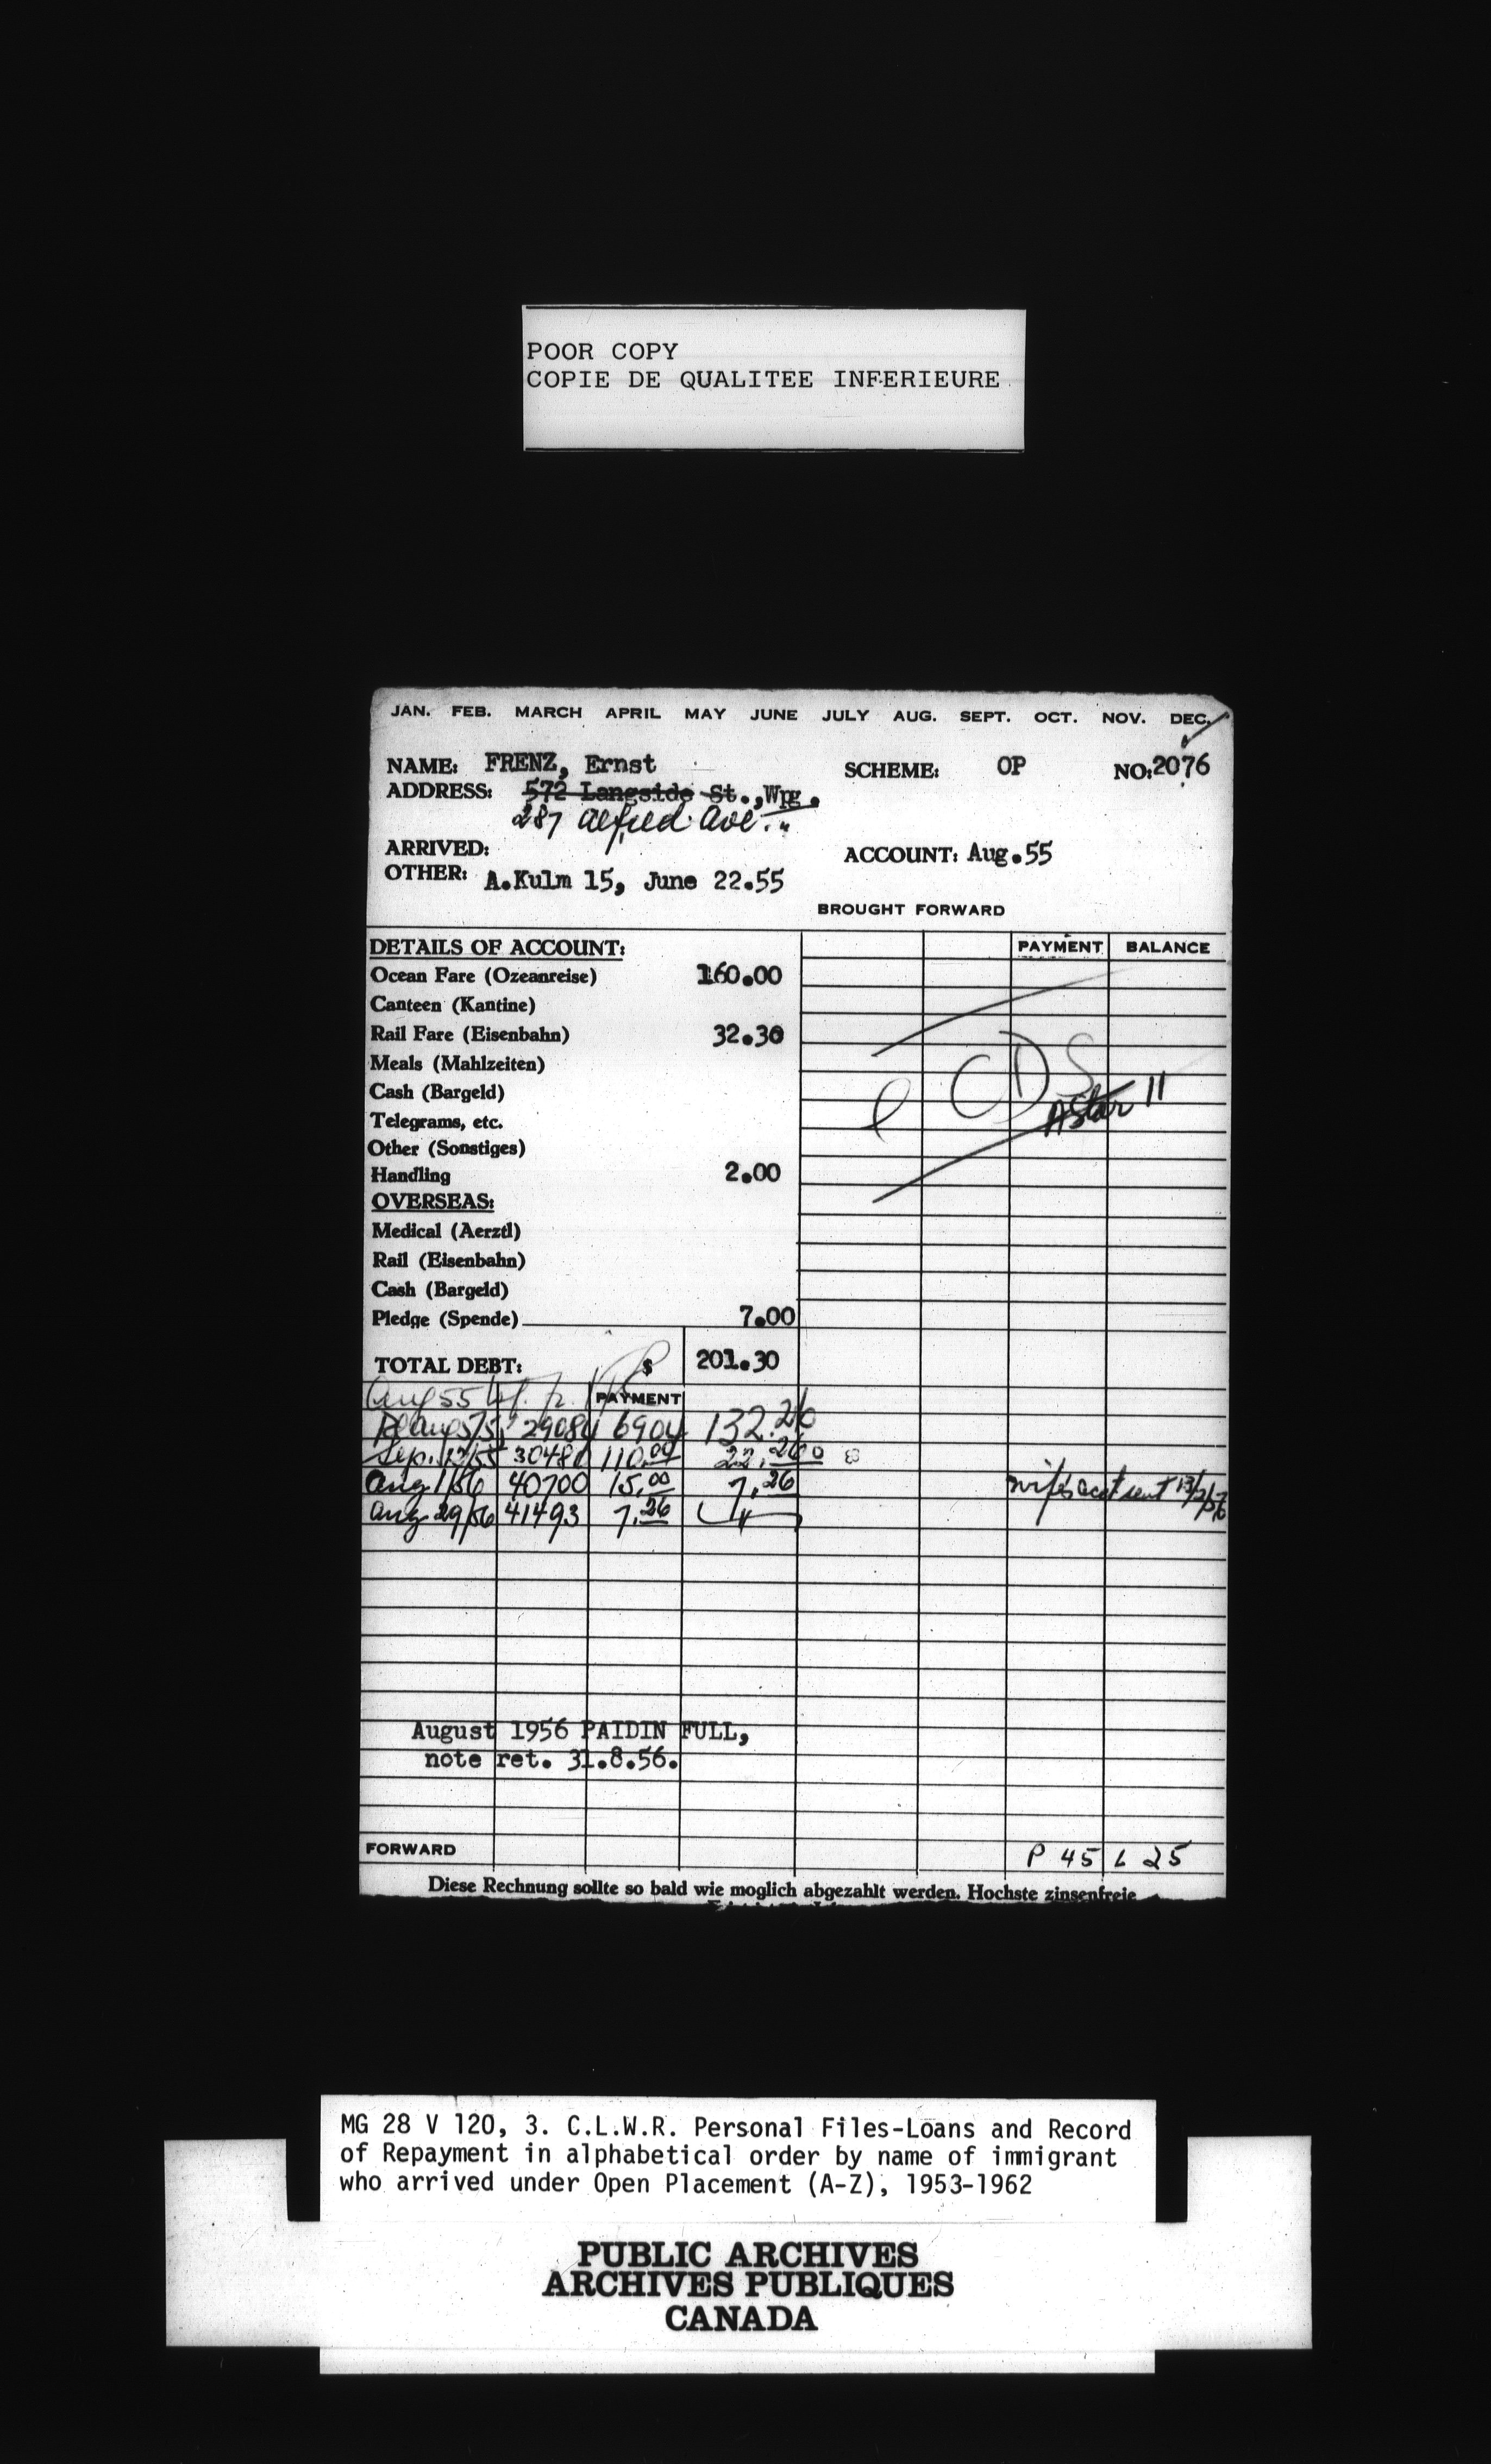 POOR COPY
COPIE DE QUALITEE INFERIEURE
JAN. FEB. MARCH APRIL MAY JUNE JULY AUG. SEPT. OCT. NOV. DEC.
NAME: FRENZ, Ernst SCHEME: OP NO: 2076
ADDRESS: 572 Langside St., Wpg.
287 Alfred Ave. "
ARRIVED: ACCOUNT: Aug.55
OTHER: A.Kulm 15, June 22.55
BROUGHT FORWARD
DETAILS OF ACCOUNT: PAYMENT BALANCE
Ocean Fare (Ozeanreise) 160.00
Canteen (Kantine)
Rail Fare (Eisenbahn) 32.30
Meals (Mahlzeiten)
Cash (Bargeld)
Telegrams, etc.
Other (Sonstiges)
Handling 2.00
OVERSEAS:
Medical (Aerztl)
Rail (Eisenbahn)
Cash (Bargeld)
Pledge (Spende) 7.00
TOTAL DEBT: $ 201.30
Aug 55 PAYMENT
29084 6904 132.26
Sep. 12/55 30480 110.00 22.26
Aug 1/56 40700 15.00 7.26 wife's acct sent
Aug 29/56 41493 7.26
August 1956 PAIDIN FULL,
note ret. 31.8.56.
FORWARD P 45 L 25
Diese Rechnung sollte so bald wie moglich abgezahlt werden. Hochste zinsenfreie
MG 28 V 120, 3. C.L.W.R. Personal Files-Loans and Record
of Repayment in alphabetical order by name of immigrant
who arrived under Open Placement (A-Z), 1953-1962
PUBLIC ARCHIVES
ARCHIVES PUBLIQUES
CANADA